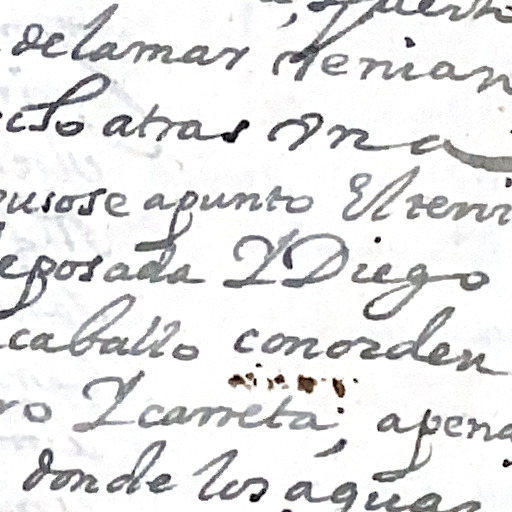 fuerte
delamar venian
cho atras una
pusose apunto El teni
Reposada Y Diego
caballo conorden
ro Y carreta; apena
donde los aguar